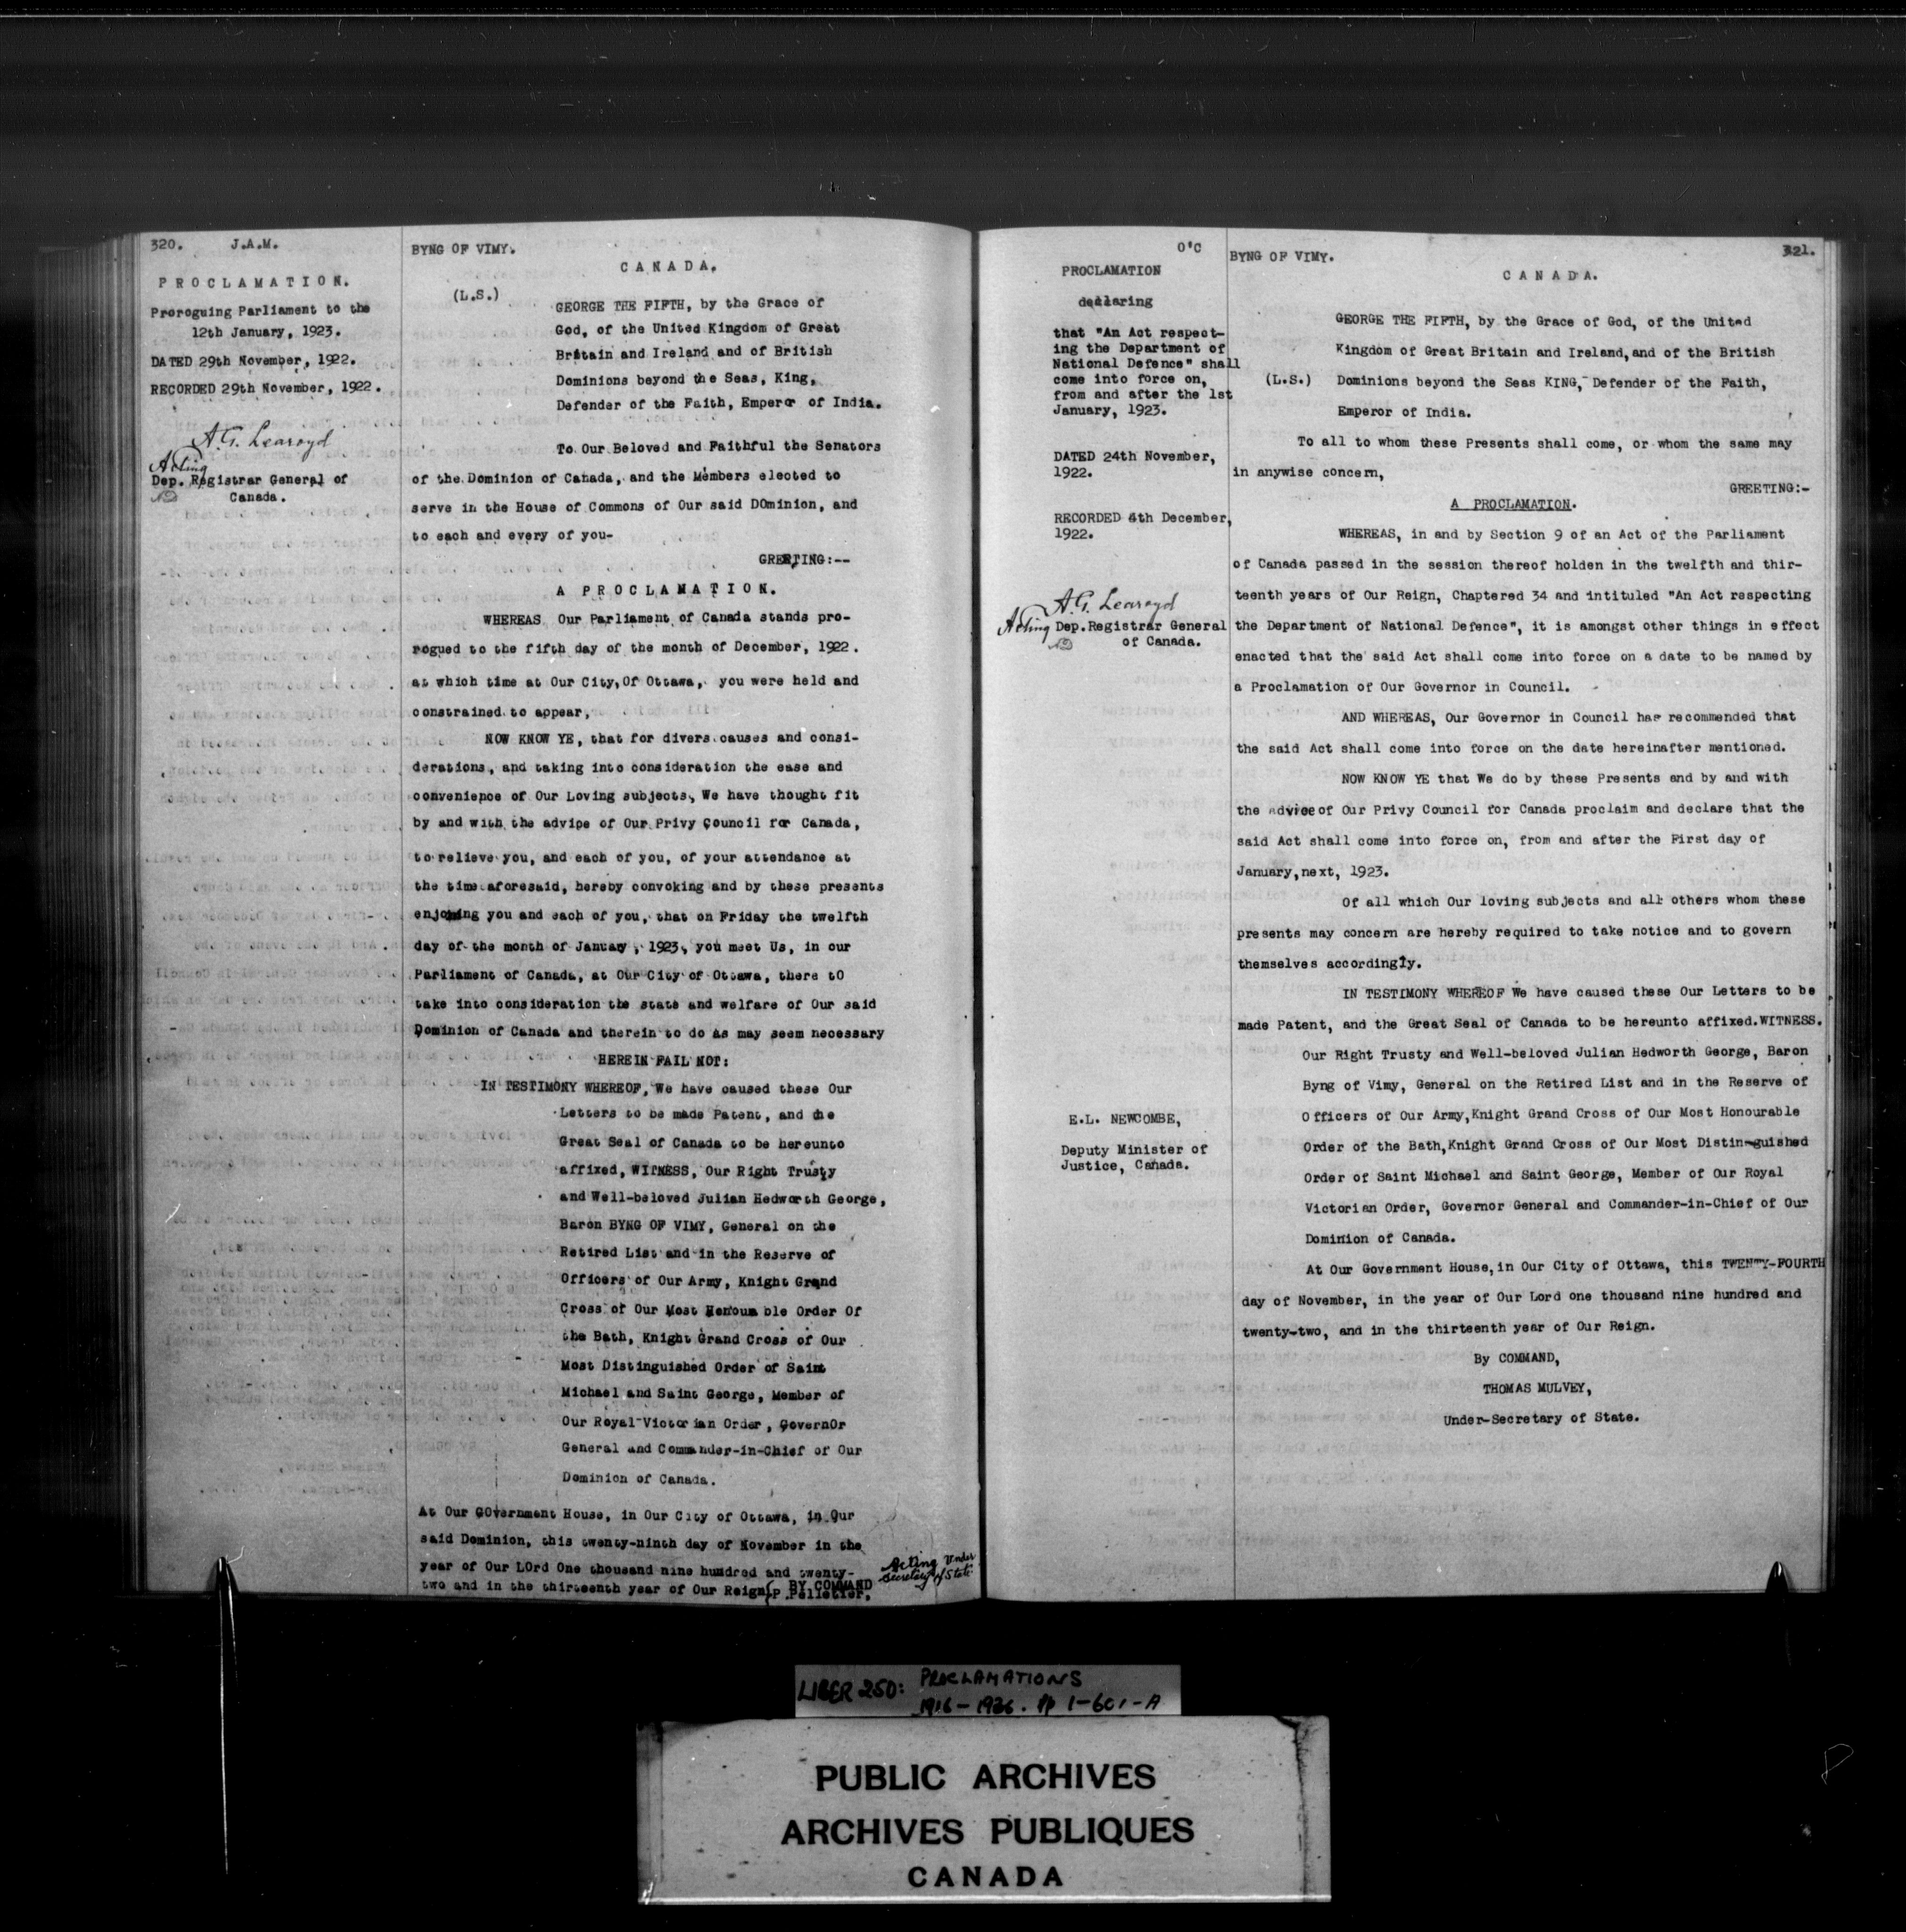 320. J.A.M.
PROCLAMATION.
Proroguing Parliament to the
12th January, 1923.
DATED 29th November, 1922.
RECORDED 29th November, 1922.
A.G. Learoyd
Acting
Dep. Registrar General of
Canada.
BYNG OF VIMY.
CANADA.
(L.S.)
GEORGE THE FIFTH, by the Grace of
God, of the United Kingdom of Great
Britain and Ireland and of British
Dominions beyond the Seas, King,
Defender of the Faith, Emperor of India.
To Our Beloved and Faithful the Senators
of the Dominion of Canada, and the Members elected to
serve in the House of Commons of Our said DOminion, and
to each and every of you-
GREETING:--
A PROCLAMATION.
WHEREAS Our Parliament of Canada stands pro-
rogued to the fifth day of the month of December, 1922.
at which time at Our City, Of Ottawa, you were held and
constrained to appear,
NOW KNOW YE, that for divers causes and consi-
derations, and taking into consideration the ease and
convenience of Our Loving subjects, We have thought fit
by and with the advipe of Our Privy Council for Canada,
to relieve you, and each of you, of your attendance at
the time aforesaid, hereby convoking and by these presents
enjoining you and each of you, that on Friday the twelfth
day of the month of January, 1923, you meet Us, in our
Parliament of Canada, at Our City of Ottawa, there tO
take into consideration the state and welfare of Our said
Dominion of Canada and therein to do as may seem necessary
HEREIN FAIL NOT:
IN TESTIMONY WHEREOF, We have caused these Our
Letters to be made Patent, and the
Great Seal of Canada to be hereunto
affixed, WITNESS, Our Right Trusty
and Well-beloved Julian Hedworth George,
Baron BYNG OF VIMY, General on the
Retired List and in the Reserve of
Officers of Our Army, Knight Grand
Cross of Our Most Honourable Order Of
the Bath, Knight Grand Cross of Our
Most Distinguished Order of Saint
Michael and Saint George, Member of
Our Royal Victorian Order, GovernOr
General and Commander-in-Chief of Our
Dominion of Canada.
At Our GOvernment House, in Our City of Ottawa, in Our
said Dominion, this twenty-ninth day of November in the
year of Our LOrd One thousand nine hundred and twenty-
two and in the thirteenth year of Our Reign
BY COMMAND
P. Pelletier,
Acting Under
Secretary of State
O'C
PROCLAMATION
declaring
that "An Act respect-
ing the Department of
National Defence" shall
come into force on,
from and after the 1st
January, 1923.
DATED 24th November,
1922.
RECORDED 4th December,
1922.
A.G. Learoyd
Acting Dep. Registrar General
of Canada.
E.L. NEWCOMBE,
Deputy Minister of
Justice, Canada.
BYNG OF VIMY.
321.
CANADA.
GEORGE THE FIFTH, by the Grace of God, of the United
Kingdom of Great Britain and Ireland, and of the British
(L.S.) Dominions beyond the Seas KING, Defender of the Faith,
Emperor of India.
To all to whom these Presents shall come, or whom the same may
in anywise concern,
GREETING:-
A PROCLAMATION.
WHEREAS, in and by Section 9 of an Act of the Parliament
of Canada passed in the session thereof holden in the twelfth and thir-
teenth years of Our Reign, Chaptered 34 and intituled "An Act respecting
the Department of National Defence", it is amongst other things in effect
enacted that the said Act shall come into force on a date to be named by
a Proclamation of Our Governor in Council.
AND WHEREAS, Our Governor in Council has recommended that
the said Act shall come into force on the date hereinafter mentioned.
NOW KNOW YE that We do by these Presents and by and with
the advice of Our Privy Council for Canada proclaim and declare that the
said Act shall come into force on, from and after the First day of
January, next, 1923.
Of all which Our loving subjects and all others whom these
presents may concern are hereby required to take notice and to govern
themselves accordingly.
IN TESTIMONY WHEREOF We have caused these Our Letters to be
made Patent, and the Great Seal of Canada to be hereunto affixed. WITNESS.
Our Right Trusty and Well-beloved Julian Hedworth George, Baron
Byng of Vimy, General on the Retired List and in the Reserve of
Officers of Our Army, Knight Grand Cross of Our Most Honourable
Order of the Bath, Knight Grand Cross of Our Most Distinguished
Order of Saint Michael and Saint George, Member of Our Royal
Victorian Order, Governor General and Commander-in-Chief of Our
Dominion of Canada.
At Our Government House, in Our City of Ottawa, this TWENTY-FOURTH
day of November, in the year of Our Lord one thousand nine hundred and
twenty-two, and in the thirteenth year of Our Reign.
By COMMAND,
THOMAS MULVEY,
Under-Secretary of State.
LIBER 250: PROCLAMATIONS
1916-1926. pp 1-601-A
PUBLIC ARCHIVES
ARCHIVES PUBLIQUES
CANADA